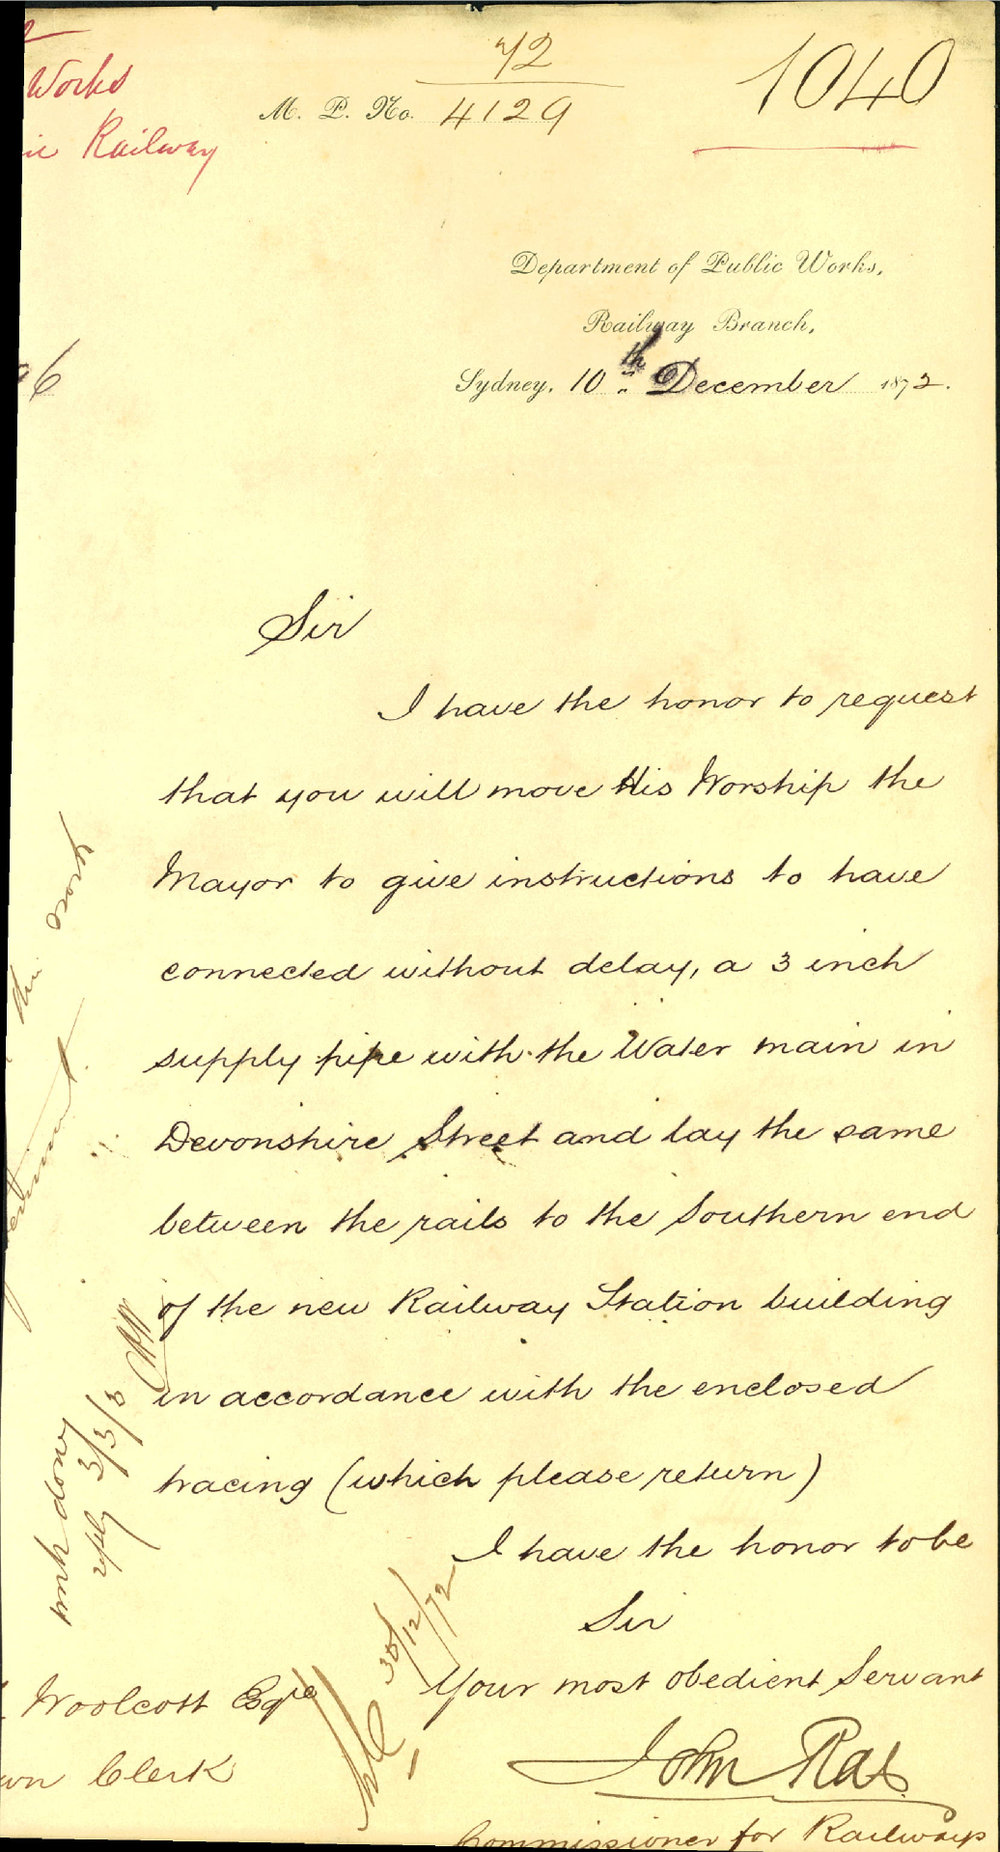 Works
Railway
72
M. P. No. 4129
1040
Department of Public Works,
Railway Branch,
Sydney, 10th December 1872.
6
Sir
I have the honor to request
that you will move His Worship the
Mayor to give instructions to have
connected without delay, a 3 inch
supply pipe with the Water main in
Devonshire Street and lay the same
between the rails to the Southern end
of the new Railway Station building
in accordance with the enclosed
tracing (which please return)
I have the honor to be
Sir
Your most obedient Servant
John Rae
Commissioner for Railways
Woolcott Esqre
Clerk
30/12/72
the work
work done
reply 3/3/3